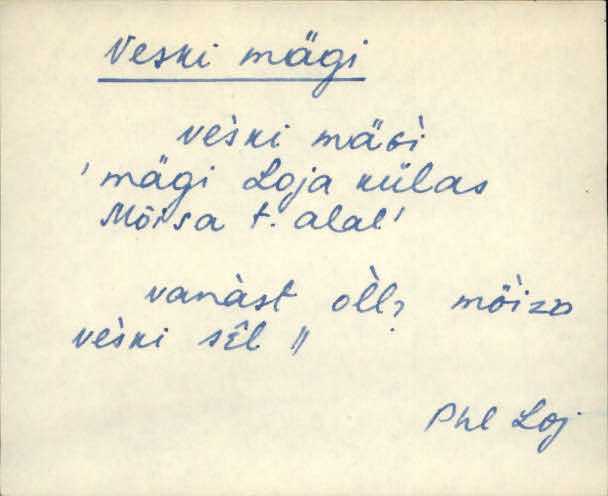 Veski mägi
ve̬ski mäɢi
'mägi Loja külas
Mõisa t. alal'
vanàst òĺĺ mõ̀iza
vèski sîl ॥
Phl Loj